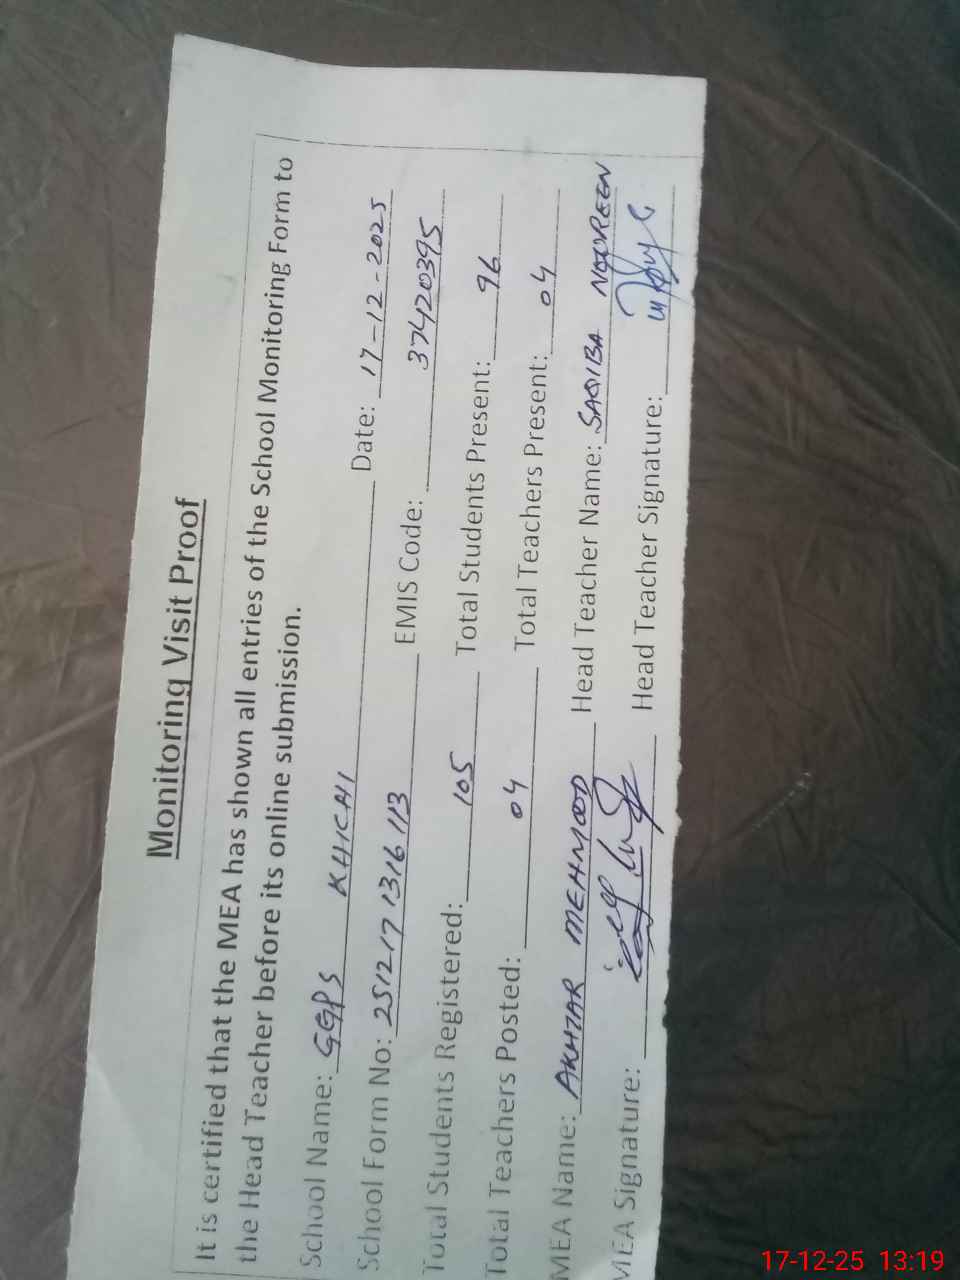 Monitoring Visit Proof
It is certified that the MEA has shown all entries of the School Monitoring Form to
the Head Teacher before its online submission.
School Name: GGPS KHICHI Date: 17-12-2025
School Form No: 251217 1316 113 EMIS Code: 37420395
Total Students Registered: 105 Total Students Present: 96
Total Teachers Posted: 04 Total Teachers Present: 04
MEA Name: AKHTAR MEHMOOD Head Teacher Name: SAQIBA NOOREEN
MEA Signature: Head Teacher Signature:
17-12-25 13:19